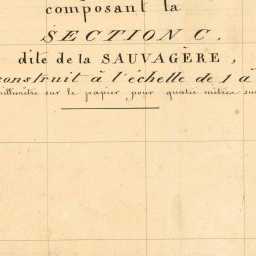 composant la
SECTION C.
dite de la SAUVAGÈRE,
construit à l'échelle de 1 à
millimètre sur le papier, pour quatre mètres sur